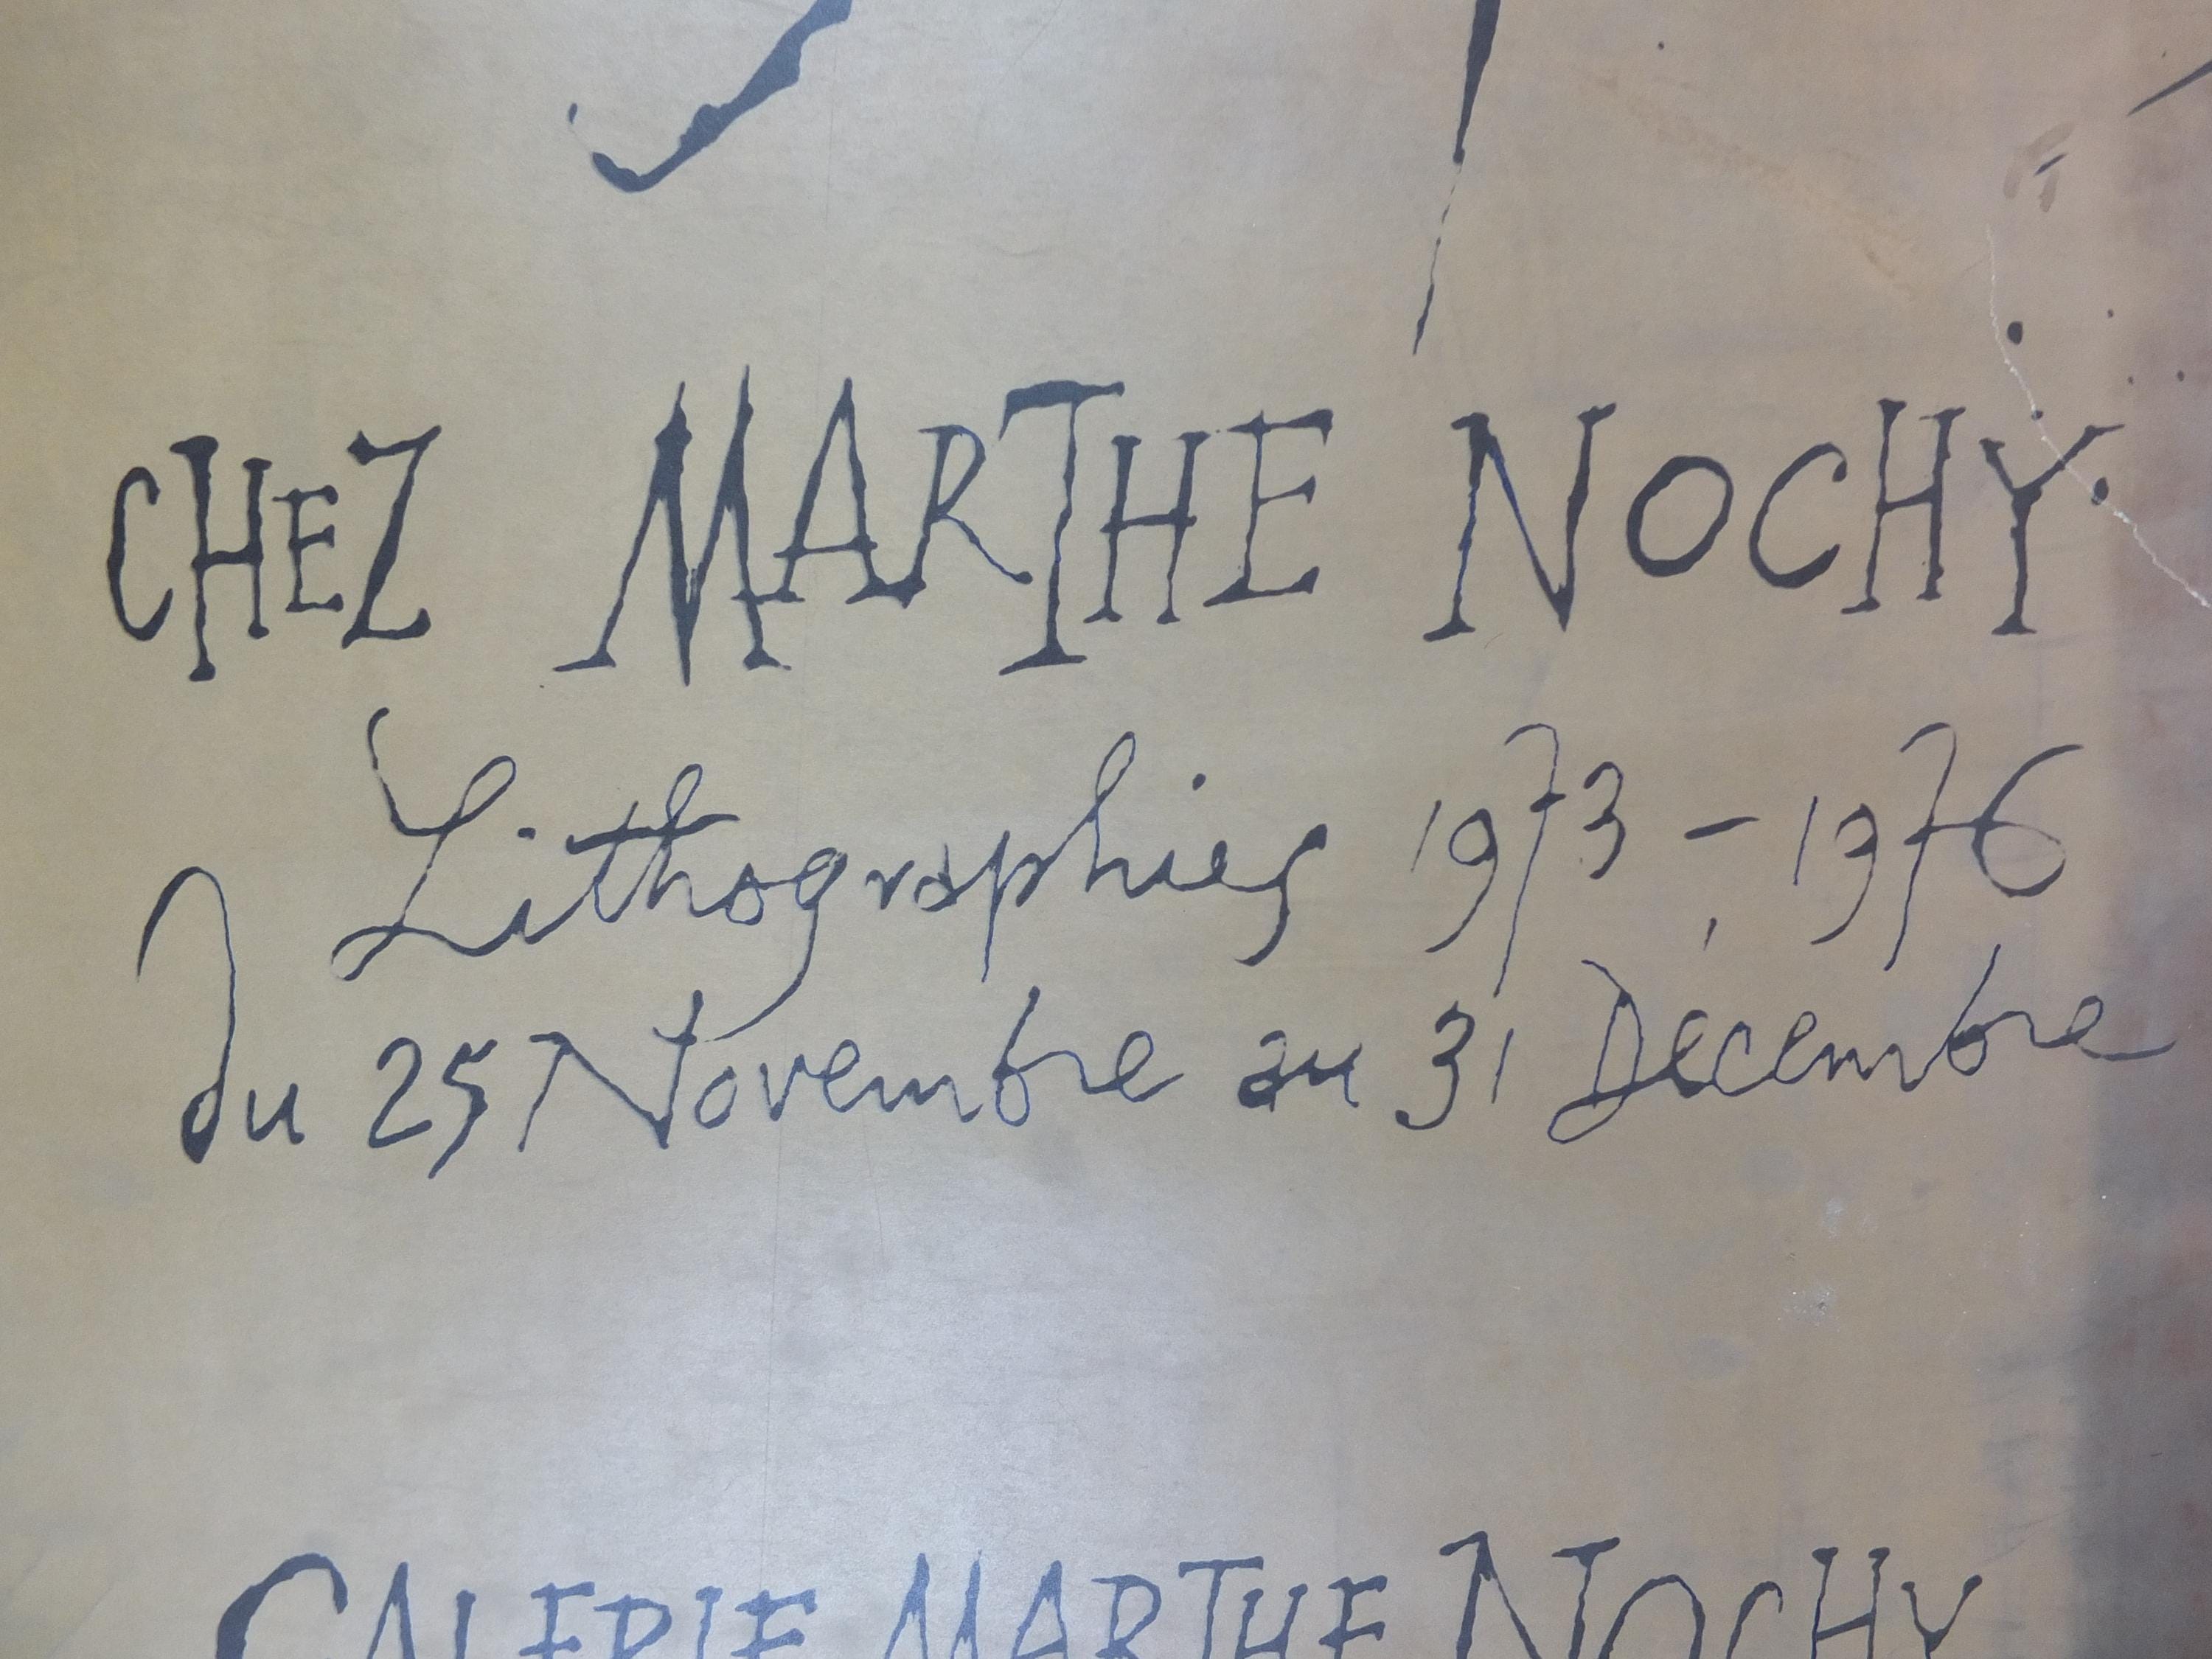 CHEZ MARTHE NOCHY
Lithographies 1973-1976
du 25 Novembre au 31 Décembre
GALERIE MARTHE NOCHY